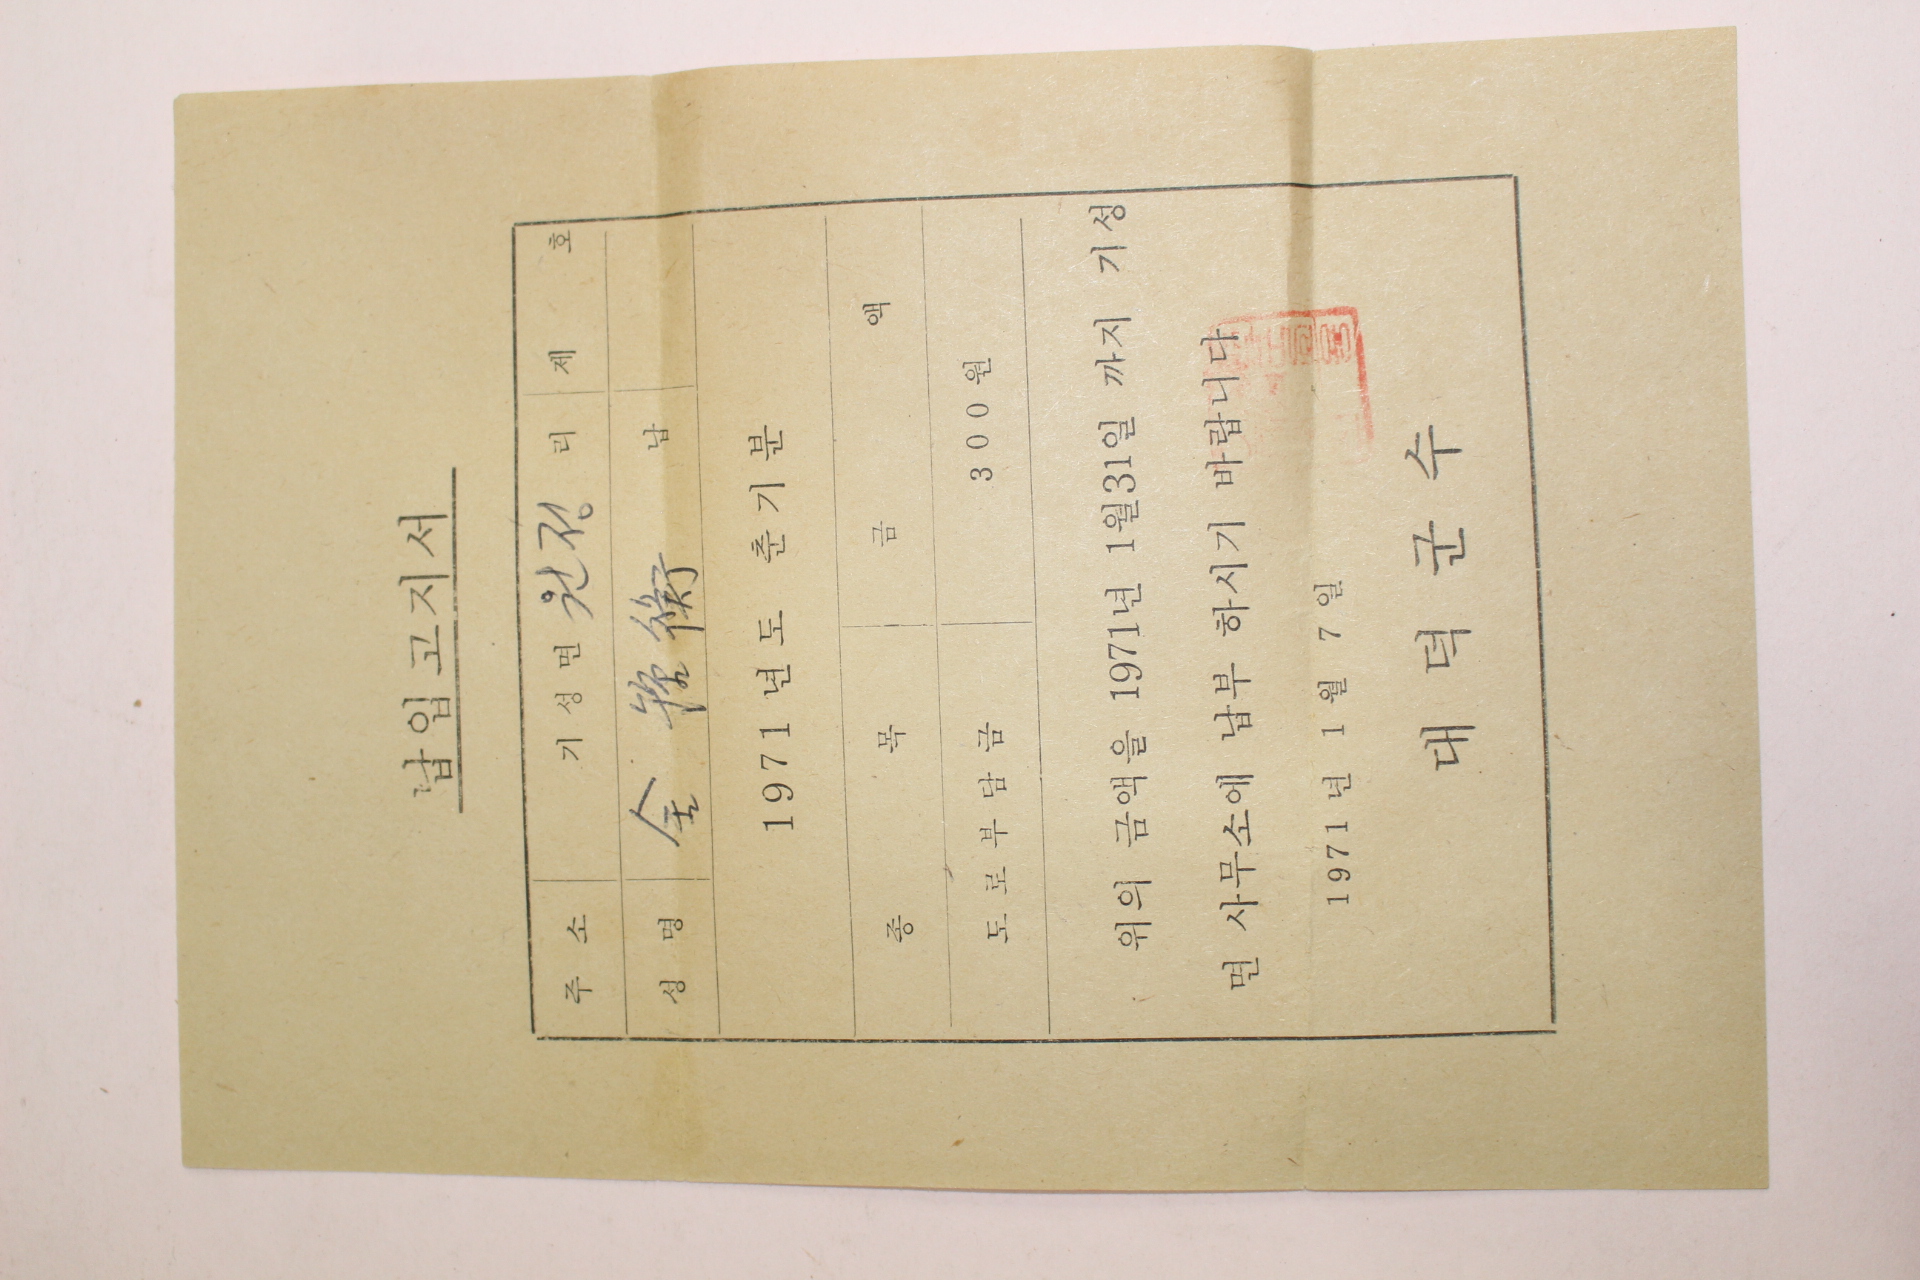 납입고지서
주소 기성면 원정 리 제 호
성명 金 衡 납
1971년도 춘기분
종목 금액
도로부담금 300원
위의 금액을 1971년 1월31일 까지 기성
면 사무소에 납부 하시기 바랍니다
1971년 1월 7일
대덕군수